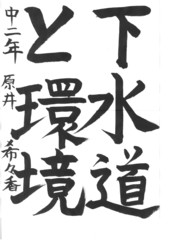 下水道
と環境
中二年 原井 希々香